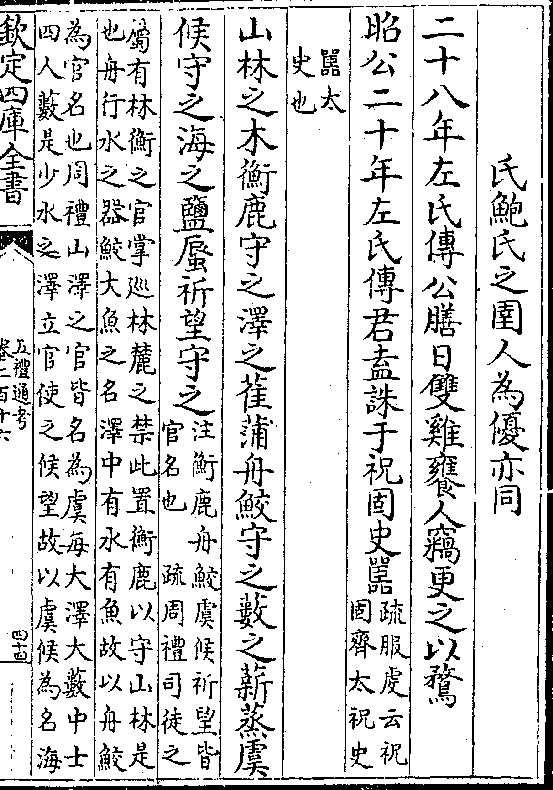 氏鮑氏之圉人為優亦同
二十八年左氏傳公膳日雙雞饔人竊更之以鶩
昭公二十年左氏傳君盍誅于祝固史嚚
疏服虔云祝
固齊太祝史
嚚太
史也
山林之木衡鹿守之澤之萑蒲舟鮫守之藪之薪蒸虞
候守之海之鹽蜃祈望守之
注衡鹿舟鮫虞候祈望皆
官名也 疏周禮司徒之
屬有林衡之官掌巡林麓之禁此置衡鹿以守山林是
也舟行水之器鮫大魚之名澤中有水有魚故以舟鮫
為官名也周禮山澤之官皆名為虞每大澤大藪中士
四人藪是少水之澤立官使之候望故以虞候為名海
欽定四庫全書
五禮通考
卷二百十六
四十四